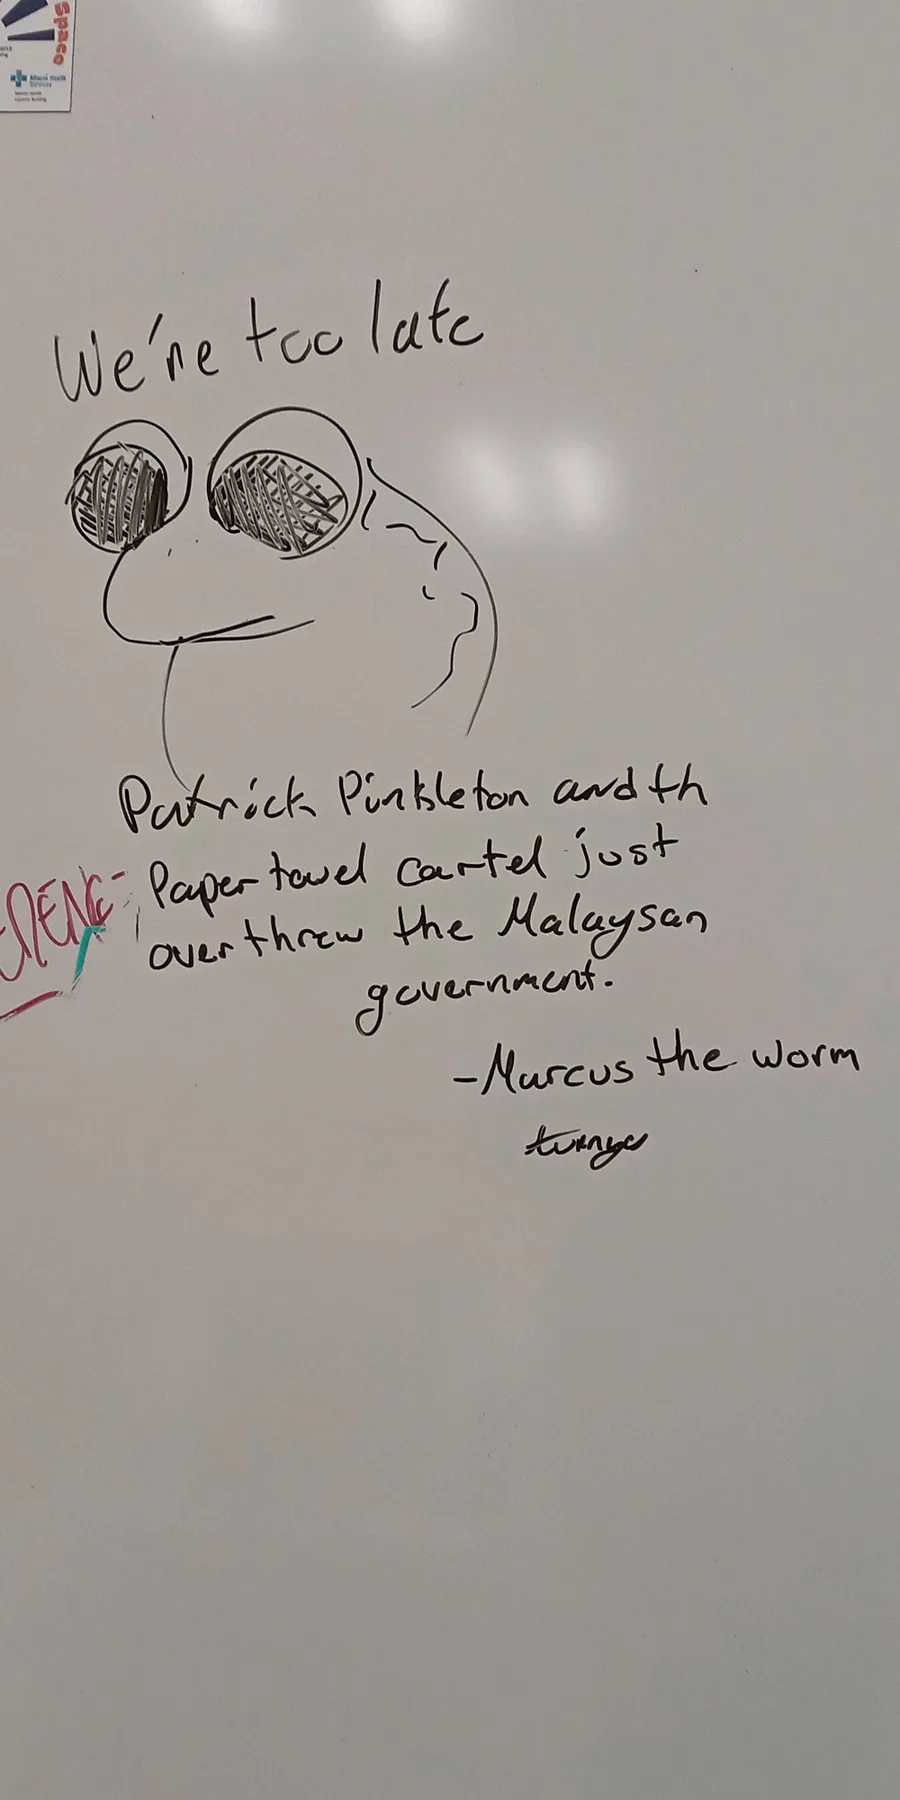 Space
Alberta Health
Services
We're too late
Patrick Pinkleton and th
Paper towel cartel just
overthrew the Malaysan
government.
-Marcus the worm